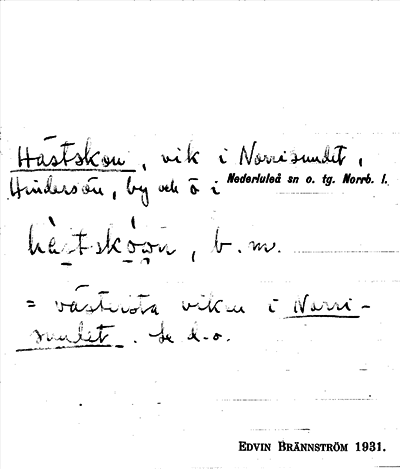 Hästskon, vik i Norrisundet,
Hindersön, by och ö i Nederluleå sn o. tg. Norrb. l.
hä̀stskó̱o̱n, b. m.
= västersta viken i Norri-
sundet. Se d. o.
EDVIN BRÄNNSTRÖM 1931.